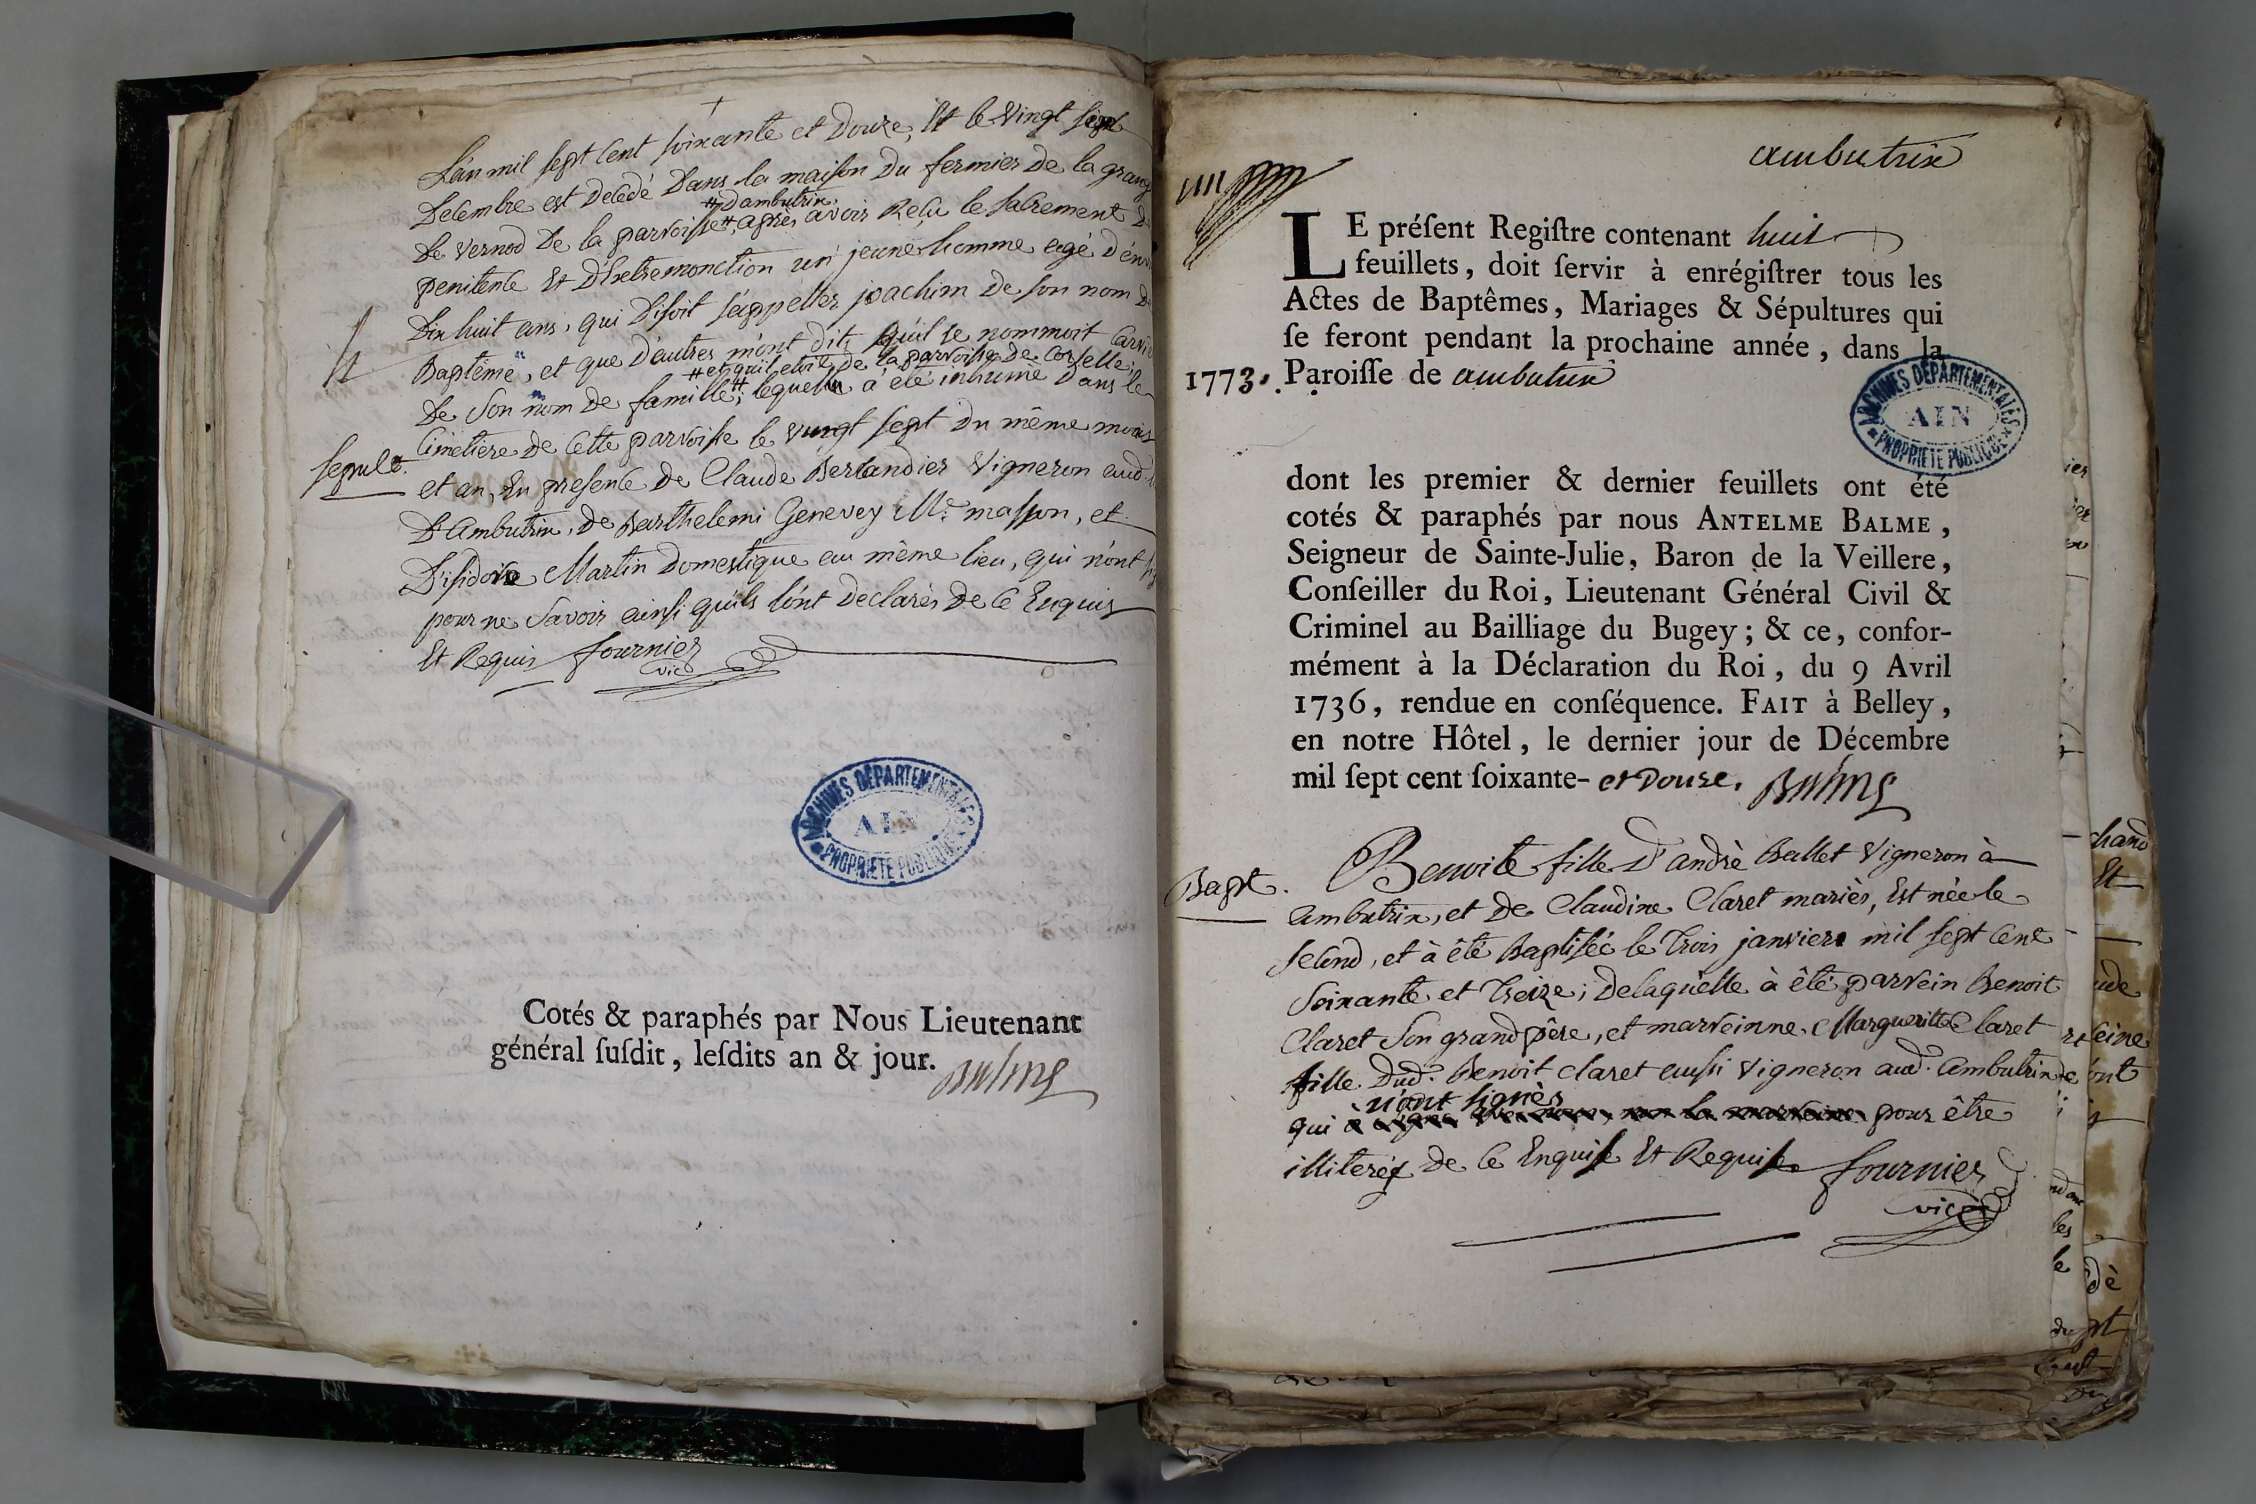 L'an mil sept cent soixante et douze, Et le vingt sept
Decembre est decedé dans la maison du fermier de la grang
de vernod de la parroisse #, après avoir Reçu le sacrement de
# d'ambutrin.
penitence Et d'Extremonction un jeune homme agé d'envi
Dix huit ans, qui disoit s'appeller joachim de son nom de
Baptême, et que d'autres m'ont dit, qu'il se nommoit
# et qu'il etoit de la parroisse de
de son nom de famille; # lequel a été inhumé dans le
Cimetiere de cette parroisse le vingt sept du même mois
sepult.
et an, En presence de Claude Berlandier Vigneron aud.
D'Ambutrin, de Barthelemi Genevey Me. masson, et
D'isidore Martin Domestique au même lieu, qui n'ont
pour ne savoir ainsi quils l'ont declarés de ce Enquis
Et Requis fournier
vic
ARCHIVES DÉPARTEMENTALES
AIN
PROPRIÉTÉ PUBLIQUE
Cotés & paraphés par Nous Lieutenant
général ſuſdit, leſdits an & jour.
Balme
ambutrix
LE préſent Regiſtre contenant huit
feuillets, doit ſervir à enrégiſtrer tous les
Actes de Baptêmes, Mariages & Sépultures qui
ſe feront pendant la prochaine année, dans la
1773. Paroiſſe de ambutrix
ARCHIVES DÉPARTEMENTALES
AIN
PROPRIÉTÉ PUBLIQUE
dont les premier & dernier feuillets ont été
cotés & paraphés par nous ANTELME BALME,
Seigneur de Sainte-Julie, Baron de la Veillere,
Conſeiller du Roi, Lieutenant Général Civil &
Criminel au Bailliage du Bugey; & ce, confor-
mément à la Déclaration du Roi, du 9 Avril
1736, rendue en conſéquence. FAIT à Belley,
en notre Hôtel, le dernier jour de Décembre
mil ſept cent ſoixante- et Douze. Balme
Bapt. Benoite fille d'andrè Ballet Vigneron à
ambutrin, et de Claudine Claret mariès, Est née le
second, et à été Baptisée le trois janvier mil sept cent
soixante et treize; delaquelle à êté parrein Benoit
Claret son grand père, et marreinne Margueritte Claret
fille dud. Benoit claret aussi vigneron aud. ambutrin
n'ont signès
qui pour être
illiterés de ce Enquis Et Requis fournier
vic